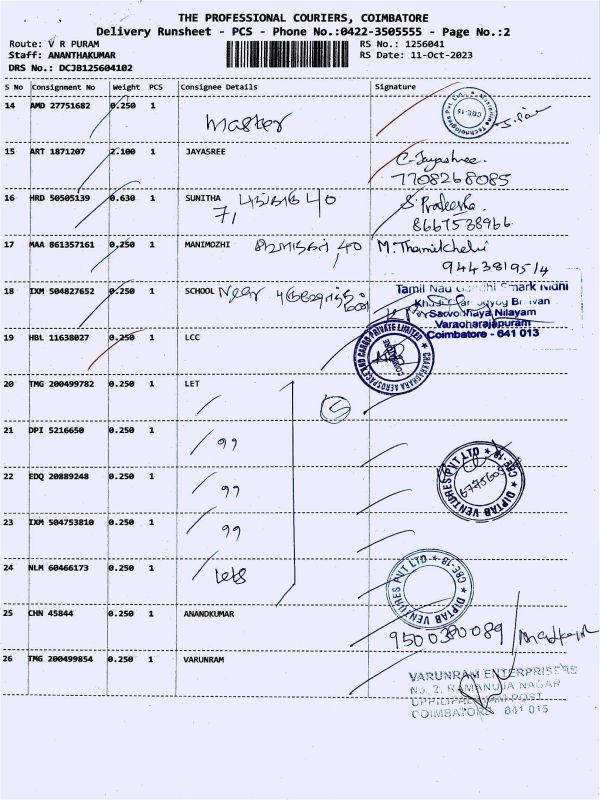 THE PROFESSIONAL COURIERS, COIMBATORE
Delivery Runsheet - PCS - Phone No.:0422-3505555 - Page No.:2
Route: V R PURAM
RS No.: 1256041
Staff: ANANTHAKUMAR
RS Date: 11-Oct-2023
DRS No.: DCJB125604102
S No Consignment No Weight PCS Consignee Details Signature
14 AMD 27751682 0.250 1
Master
15 ART 1871207 2.100 1 JAYASREE
C. Jayashree.
7708268085
16 HRD 50505139 0.630 1 SUNITHA
7, 40
8667538966
17 MAA 861357161 0.250 1 MANIMOZHI 40
M. Thamilchelvi
9443819514
18 IXM 504827652 0.250 1 SCHOOL Near
Tamil Nadu Gandhi Smark Nidhi
Sarvodhaya Nilayam
Varadharajapuram
Coimbatore - 641 013
19 HBL 11638027 0.250 1 LCC
CHAKRADHARA AEROSPACE AND CARGO PRIVATE LIMITED
COIMBATORE
20 TMG 200499782 0.250 1 LET
21 DPI 5216650 0.250 1
99
22 EDQ 20889248 0.250 1
99
DIPTAB VENTURES PVT LTD CBE-18
23 IXM 504753810 0.250 1
99
24 NLM 60466173 0.250 1
Lets
DIPTAB VENTURES PVT LTD CBE-18
25 CHN 45844 0.250 1 ANANDKUMAR
9500380089
26 TMG 200499854 0.250 1 VARUNRAM
VARUNRAM ENTERPRISERS
No. 2, RAMANUJA NAGAR
UPPILIPALAYAM POST
COIMBATORE 641 015